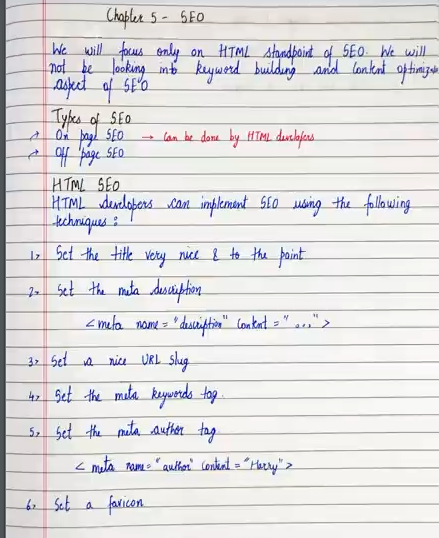 Chapter 5 - SEO
We will focus only on HTML standpoint of SEO. We will
not be looking into keyword building and content optimiza
aspect of SEO
Types of SEO
→ On page SEO → Can be done by HTML developers
→ Off page SEO
HTML SEO
HTML developers can implement SEO using the following
techniques :
1> Set the title very nice & to the point
2> Set the meta description
<meta name = "description" Content = "...">
3> Set a nice URL slug
4> Set the meta keywords tag.
5> Set the meta author tag
< meta name = "author" Content = "Harry">
6> Set a favicon